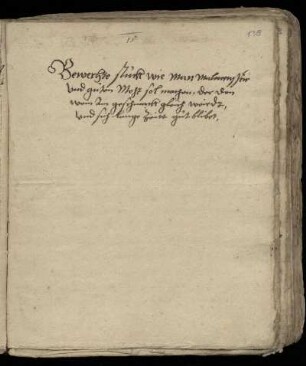 Bewerthe stuckh wie man
und guten Most sol machen, der dem
wein am geschmack gleich würdt,
und sich lange zeitt gut bleibet.